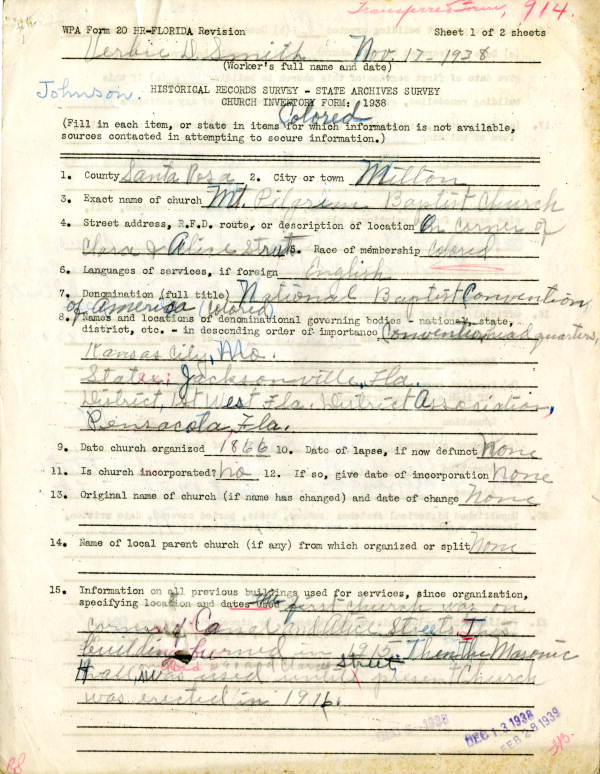 Transferred from, 914.
WPA Form 20 HR-FLORIDA Revision Sheet 1 of 2 sheets
Verbie D. Smith Nov. 17-1938
(Worker's full name and date)
Johnson. HISTORICAL RECORDS SURVEY - STATE ARCHIVES SURVEY
CHURCH INVENTORY FORM: 1938
Colored
(Fill in each item, or state in items for which information is not available,
sources contacted in attempting to secure information.)
1. County Santa Rosa 2. City or town Milton
3. Exact name of church Mt. Pilgrim Baptist Church
4. Street address, R.F.D. route, or description of location On corner of
Clara & Alice Streets 5. Race of membership Colored
6. Languages of services, if foreign English
7. Denomination (full title) National Baptist Convention
of America Colored
8. Names and locations of denominational governing bodies - national, state,
district, etc. - in descending order of importance Convention headquarters,
Kansas City, Mo.
State; Jacksonville, Fla.
District, 1st West Fla. District Association,
Pensacola, Fla.
9. Date church organized 1866 10. Date of lapse, if now defunct None
11. Is church incorporated? no 12. If so, give date of incorporation None
13. Original name of church (if name has changed) and date of change None
14. Name of local parent church (if any) from which organized or split None
15. Information on all previous buildings used for services, since organization,
specifying location and dates used the first church was on
corner of Canal and Alice Street,
building burned in 1915. Then the Masonic
Hall, Street was used until present church
was erected in 1916.
DEC 13 1938
FEB 28 1939